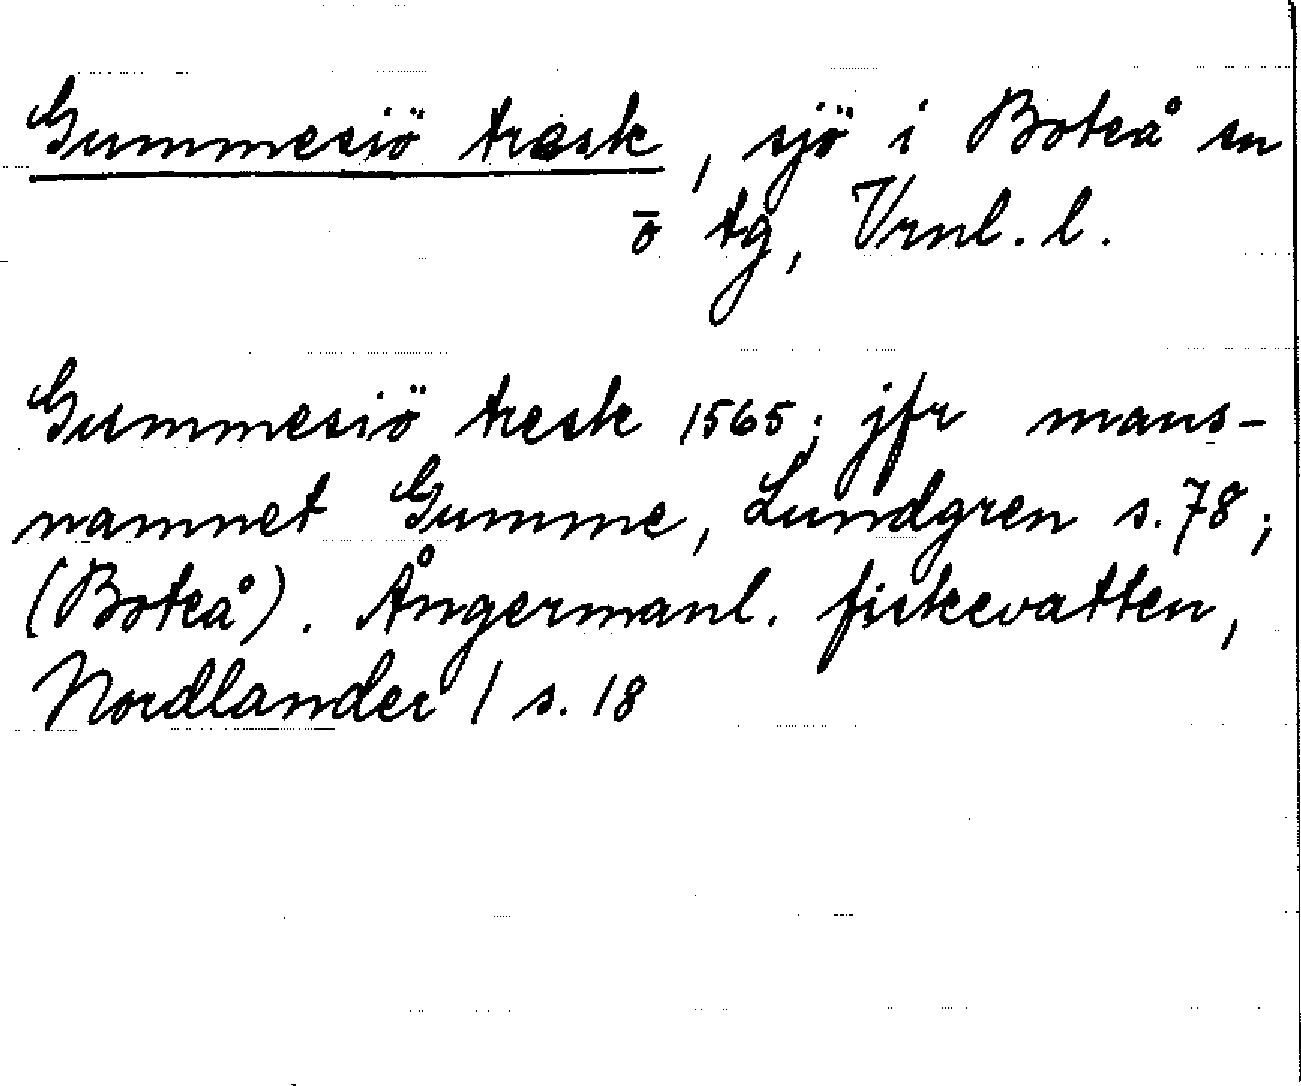 Gummesiö tresk, sjö i Boteå sn
o tg, Vrnl. l.
Gummesiö tresk 1565; jfr mans-
namnet Gumme, Lundgren s. 78;
(Boteå). Ångermanl. fiskevatten,
Nordlander / s. 18